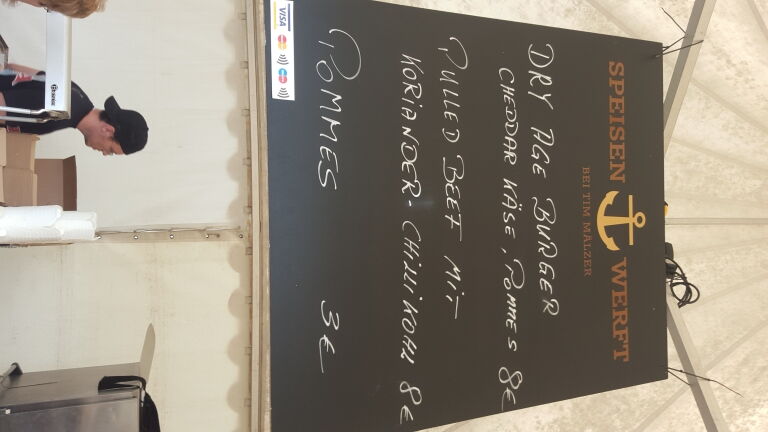 SPEISEN WERFT
BEI TIM MÄLZER
DRY AGE BURGER
CHEDDAR KÄSE, POMMES 8€
PULLED BEEF MIT
KORIANDER-CHILLIKOHL 8€
POMMES 3€
VISA